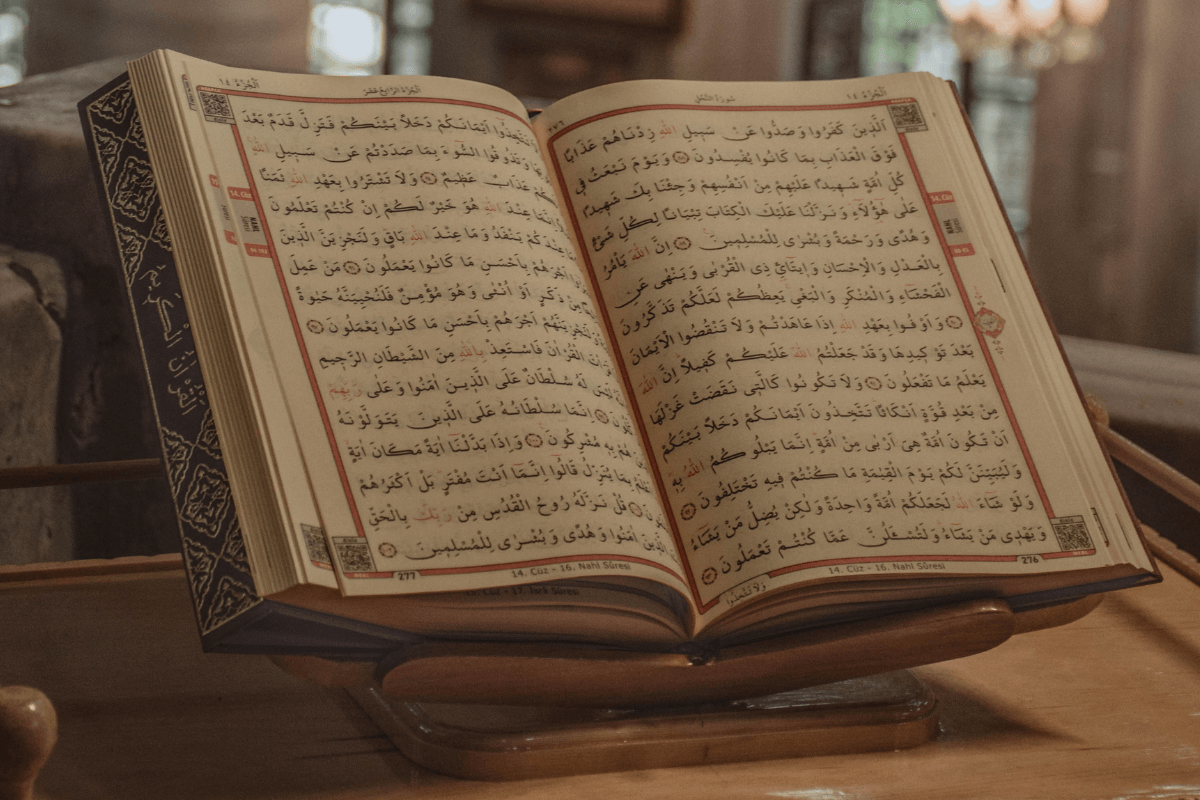 اَلْجُزْءُ ١٤
سُورَةُ النَّحْلِ
٢٧٦
اَلَّذِينَ كَفَرُوا وَصَدُّوا عَنْ سَبِيلِ اللّٰهِ زِدْنَاهُمْ عَذَابًا
فَوْقَ الْعَذَابِ بِمَا كَانُوا يُفْسِدُونَ وَيَوْمَ نَبْعَثُ فِي
كُلِّ اُمَّةٍ شَهِيدًا عَلَيْهِمْ مِنْ اَنْفُسِهِمْ وَجِئْنَا بِكَ شَهِيدًا
عَلٰى هٰٓؤُلَٓاءِ وَنَزَّلْنَا عَلَيْكَ الْكِتَابَ تِبْيَانًا لِكُلِّ شَيْءٍ
وَهُدًى وَرَحْمَةً وَبُشْرٰى لِلْمُسْلِمِينَ اِنَّ اللّٰهَ يَأْمُرُ
بِالْعَدْلِ وَالْاِحْسَانِ وَاِيتَٓائِ ذِي الْقُرْبٰى وَيَنْهٰى عَنِ
الْفَحْشَٓاءِ وَالْمُنْكَرِ وَالْبَغْيِ يَعِظُكُمْ لَعَلَّكُمْ تَذَكَّرُونَ
وَاَوْفُوا بِعَهْدِ اللّٰهِ اِذَا عَاهَدْتُمْ وَلَا تَنْقُضُوا الْاَيْمَانَ
بَعْدَ تَوْكِيدِهَا وَقَدْ جَعَلْتُمُ اللّٰهَ عَلَيْكُمْ كَفِيلًا اِنَّ اللّٰهَ
يَعْلَمُ مَا تَفْعَلُونَ وَلَا تَكُونُوا كَالَّتِي نَقَضَتْ غَزْلَهَا
مِنْ بَعْدِ قُوَّةٍ اَنْكَاثًا تَتَّخِذُونَ اَيْمَانَكُمْ دَخَلًا بَيْنَكُمْ
اَنْ تَكُونَ اُمَّةٌ هِيَ اَرْبٰى مِنْ اُمَّةٍ اِنَّمَا يَبْلُوكُمُ اللّٰهُ بِهِ
وَلَيُبَيِّنَنَّ لَكُمْ يَوْمَ الْقِيٰمَةِ مَا كُنْتُمْ فِيهِ تَخْتَلِفُونَ
وَلَوْ شَٓاءَ اللّٰهُ لَجَعَلَكُمْ اُمَّةً وَاحِدَةً وَلٰكِنْ يُضِلُّ مَنْ يَشَٓاءُ
وَيَهْدِي مَنْ يَشَٓاءُ وَلَتُسْـَٔلُنَّ عَمَّا كُنْتُمْ تَعْمَلُونَ
وَلَا تَتَّخِذُوا
14. Cüz - 16. Nahl Sûresi
276
14. Cüz
اَلْجُزْءُ الرَّابِعَ عَشَرَ
اَلْجُزْءُ ١٤
تَتَّخِذُٓوا اَيْمَانَكُمْ دَخَلًا بَيْنَكُمْ فَتَزِلَّ قَدَمٌ بَعْدَ
وَتَذُوقُوا السُّٓوءَ بِمَا صَدَدْتُمْ عَنْ سَبِيلِ اللّٰهِ
عَذَابٌ عَظِيمٌ وَلَا تَشْتَرُوا بِعَهْدِ اللّٰهِ ثَمَنًا
اِنَّمَا عِنْدَ اللّٰهِ هُوَ خَيْرٌ لَكُمْ اِنْ كُنْتُمْ تَعْلَمُونَ
عِنْدَكُمْ يَنْفَدُ وَمَا عِنْدَ اللّٰهِ بَاقٍ وَلَنَجْزِيَنَّ الَّذِينَ
اَجْرَهُمْ بِاَحْسَنِ مَا كَانُوا يَعْمَلُونَ مَنْ عَمِلَ
مِنْ ذَكَرٍ اَوْ اُنْثٰى وَهُوَ مُؤْمِنٌ فَلَنُحْيِيَنَّهُ حَيٰوةً
وَلَنَجْزِيَنَّهُمْ اَجْرَهُمْ بِاَحْسَنِ مَا كَانُوا يَعْمَلُونَ
الْقُرْاٰنَ فَاسْتَعِذْ بِاللّٰهِ مِنَ الشَّيْطَانِ الرَّجِيمِ
لَهُ سُلْطَانٌ عَلَى الَّذِينَ اٰمَنُوا وَعَلٰى رَبِّهِمْ
اِنَّمَا سُلْطَانُهُ عَلَى الَّذِينَ يَتَوَلَّوْنَهُ
هُمْ بِهِ مُشْرِكُونَ وَاِذَا بَدَّلْنَٓا اٰيَةً مَكَانَ اٰيَةٍ
اَعْلَمُ بِمَا يُنَزِّلُ قَالُٓوا اِنَّمَٓا اَنْتَ مُفْتَرٍ بَلْ اَكْثَرُهُمْ
قُلْ نَزَّلَهُ رُوحُ الْقُدُسِ مِنْ رَبِّكَ بِالْحَقِّ
الَّذِينَ اٰمَنُوا وَهُدًى وَبُشْرٰى لِلْمُسْلِمِينَ
14. Cüz - 16. Nahl Sûresi
277
14. Cüz